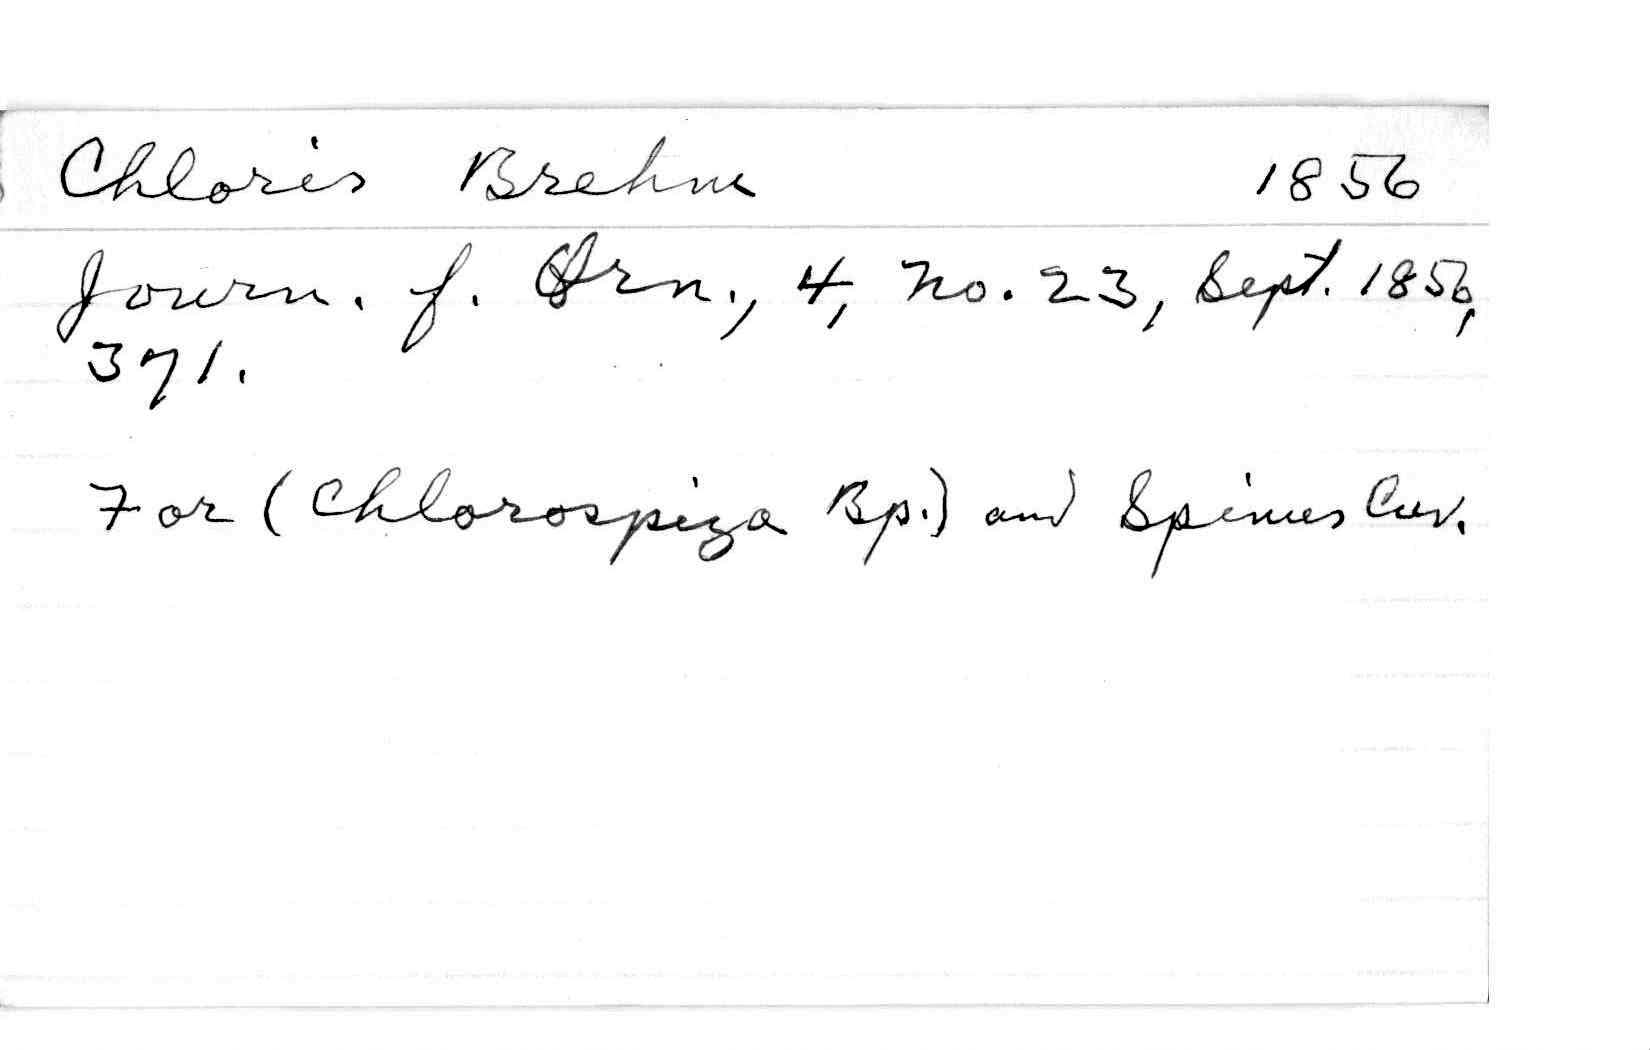 Chloris Brehm 1856
Journ. f. Orn., 4, No. 23, Sept. 1856,
371.
For (Chlorospiza Bp.) and Spinus Cuv.